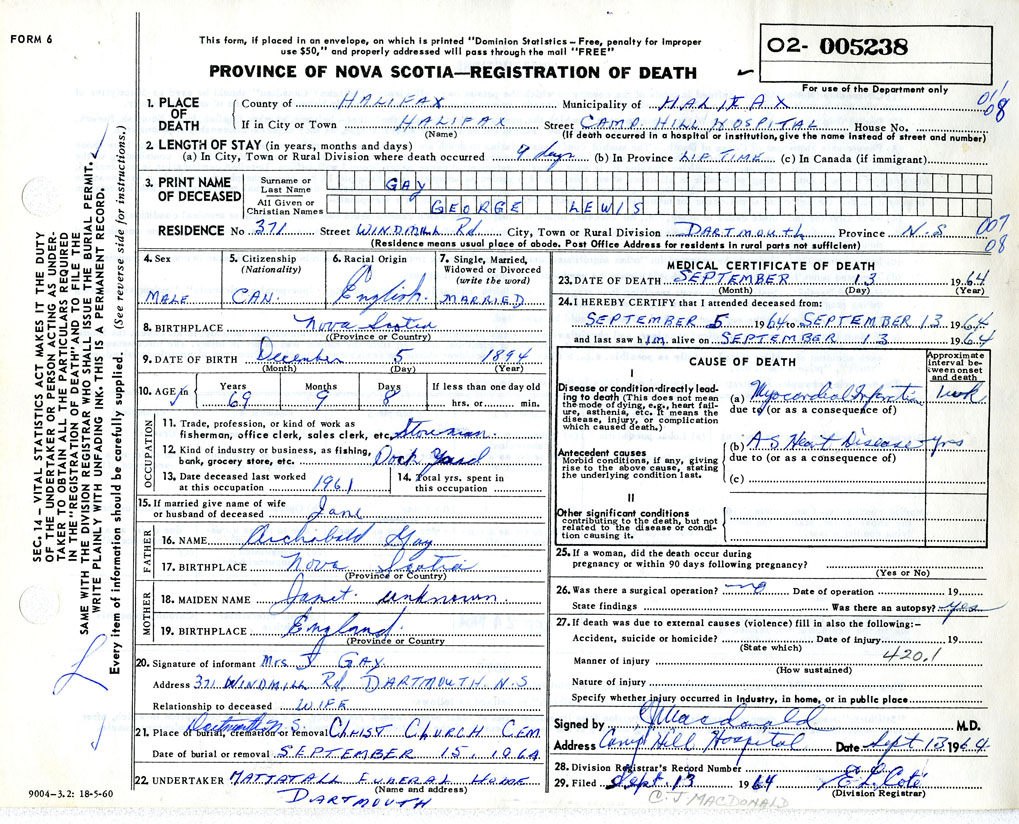 FORM 6
This form, if placed in an envelope, on which is printed "Dominion Statistics – Free, penalty for improper
use $50," and properly addressed will pass through the mail "FREE"
PROVINCE OF NOVA SCOTIA—REGISTRATION OF DEATH
02- 005238
For use of the Department only
01/08
1. PLACE OF DEATH
County of HALIFAX Municipality of HALIFAX
If in City or Town HALIFAX Street CAMP HILL HOSPITAL House No.
(Name) (If death occurred in a hospital or institution, give the name instead of street and number)
2. LENGTH OF STAY (in years, months and days)
(a) In City, Town or Rural Division where death occurred 9 days (b) In Province LIF TIME (c) In Canada (if immigrant)
3. PRINT NAME OF DECEASED
Surname or Last Name GAy
All Given or Christian Names GEORGE LEWIS
RESIDENCE No 371 Street WINDMILL Rd City, Town or Rural Division DARTMOUTH Province N.S
007
08
(Residence means usual place of abode. Post Office Address for residents in rural parts not sufficient)
4. Sex
MALE
5. Citizenship
(Nationality)
CAN.
6. Racial Origin
English.
7. Single, Married, Widowed or Divorced
(write the word)
MARRIED
8. BIRTHPLACE Nova Scotia
(Province or Country)
9. DATE OF BIRTH December 5 1894
(Month) (Day) (Year)
10. AGE in Years 69 Months 9 Days 8 If less than one day old
hrs. or min.
OCCUPATION
11. Trade, profession, or kind of work as
fisherman, office clerk, sales clerk, etc. Storesman.
12. Kind of industry or business, as fishing,
bank, grocery store, etc. Dock yard
13. Date deceased last worked
at this occupation 1961
14. Total yrs. spent in
this occupation
15. If married give name of wife
or husband of deceased Jane
FATHER
16. NAME Archibald Gay
17. BIRTHPLACE Nova Scotia
(Province or Country)
MOTHER
18. MAIDEN NAME Janet unknown.
19. BIRTHPLACE England.
(Province or Country
20. Signature of informant Mrs J GAY
Address 371 WINDMILL Rd DARTMOUTH. N.S
Relationship to deceased WIFE
Dartmouth N.S.
21. Place of burial, cremation or removal CHRIST CHURCH CEM
Date of burial or removal SEPTEMBER 15, 1964
22. UNDERTAKER MATTATALL FUNERAL HOME
(Name and address)
DARTMOUTH
9004-3.2: 18-5-60
MEDICAL CERTIFICATE OF DEATH
23. DATE OF DEATH SEPTEMBER 13 1964
(Month) (Day) (Year)
24. I HEREBY CERTIFY that I attended deceased from:
SEPTEMBER 5 1964 to SEPTEMBER 13 1964
and last saw him alive on SEPTEMBER 13 1964
CAUSE OF DEATH
Approximate interval between onset and death
I
Disease or condition directly leading to death (This does not mean the mode of dying, e.g., heart failure, asthenia, etc. It means the disease, injury, or complication which caused death.)
(a) Myocardial Infarction week
due to (or as a consequence of)
Antecedent causes
Morbid conditions, if any, giving rise to the above cause, stating the underlying condition last.
(b) A.S. Heart Disease yrs
due to (or as a consequence of)
(c)
II
Other significant conditions
contributing to the death, but not related to the disease or condition causing it.
25. If a woman, did the death occur during
pregnancy or within 90 days following pregnancy?
(Yes or No)
26. Was there a surgical operation? no Date of operation 19
State findings Was there an autopsy? yes
27. If death was due to external causes (violence) fill in also the following:–
Accident, suicide or homicide? Date of injury 19
(State which)
420.1
Manner of injury
(How sustained)
Nature of injury
Specify whether injury occurred in industry, in home, or in public place
Signed by CJMacdonald M.D.
Address Camp Hill Hospital Date Sept 13 1964
28. Division Registrar's Record Number
29. Filed Sept 13 1964 E L Coté
(Division Registrar)
C. J MACDONALD
SEC. 14 – VITAL STATISTICS ACT MAKES IT THE DUTY
OF THE UNDERTAKER OR PERSON ACTING AS UNDER-
TAKER TO OBTAIN ALL THE PARTICULARS REQUIRED
IN THE "REGISTRATION OF DEATH" AND TO FILE THE
SAME WITH THE DIVISION REGISTRAR WHO SHALL ISSUE THE BURIAL PERMIT.
WRITE PLAINLY WITH UNFADING INK. THIS IS A PERMANENT RECORD.
Every item of information should be carefully supplied. (See reverse side for instructions.)